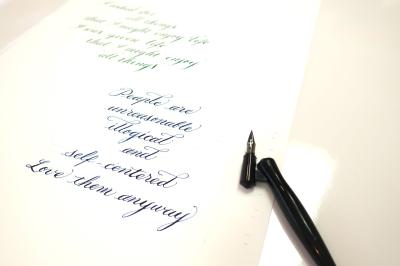 I asked for
all things
that I might enjoy life
Was given life
that I might enjoy
all things
People are
unreasonable
illogical
and
self-centered
Love them anyway